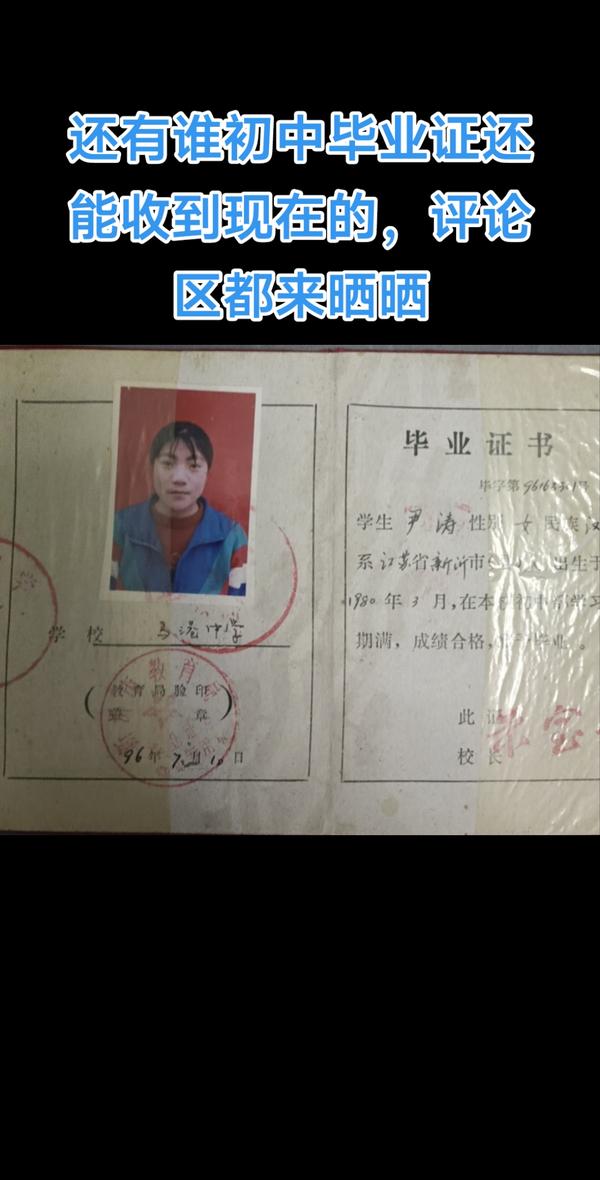 还有谁初中毕业证还
能收到现在的，评论
区都来晒晒
学 校 马港中学
教育
（教育局验印
盖 章）
96年7月10日
毕业证书
毕字第
学生 尹涛 性别 女 民族 汉
系 江苏省新沂市 出生于
1980年3月，在本校初中部学习
期满，成绩合格， 毕业。
此 证
校 长